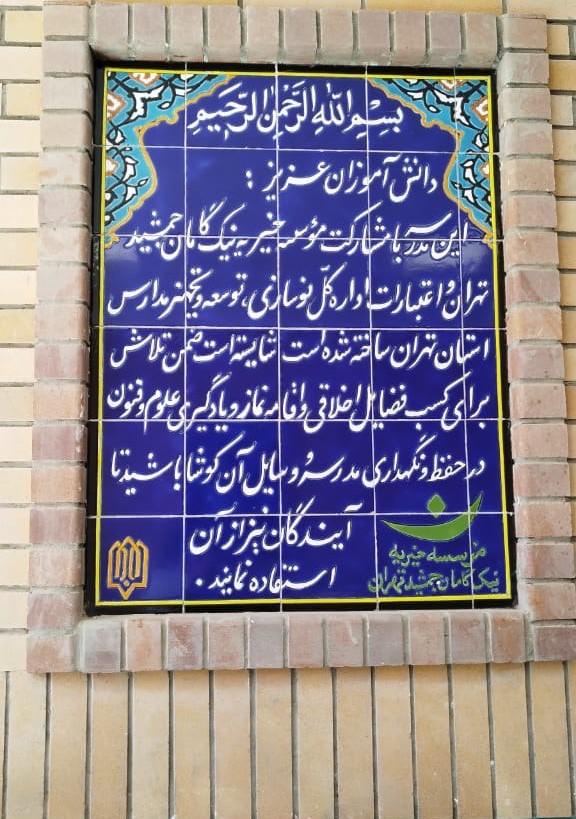 بسم الله الرحمن الرحیم
دانش آموزان عزیز :
این مدرسه با مشارکت مؤسسه خیریه نیک گامان جمشید
تهران و اعتبارات اداره کل نوسازی، توسعه و تجهیز مدارس
استان تهران ساخته شده است شایسته است ضمن تلاش
برای کسب فضایل اخلاقی و اقامه نماز و یادگیری علوم و فنون
در حفظ و نگهداری مدرسه و وسایل آن کوشا باشید تا
آیندگان نیز از آن
استفاده نمایند .
مؤسسه خیریه
نیک گامان جمشید تهران